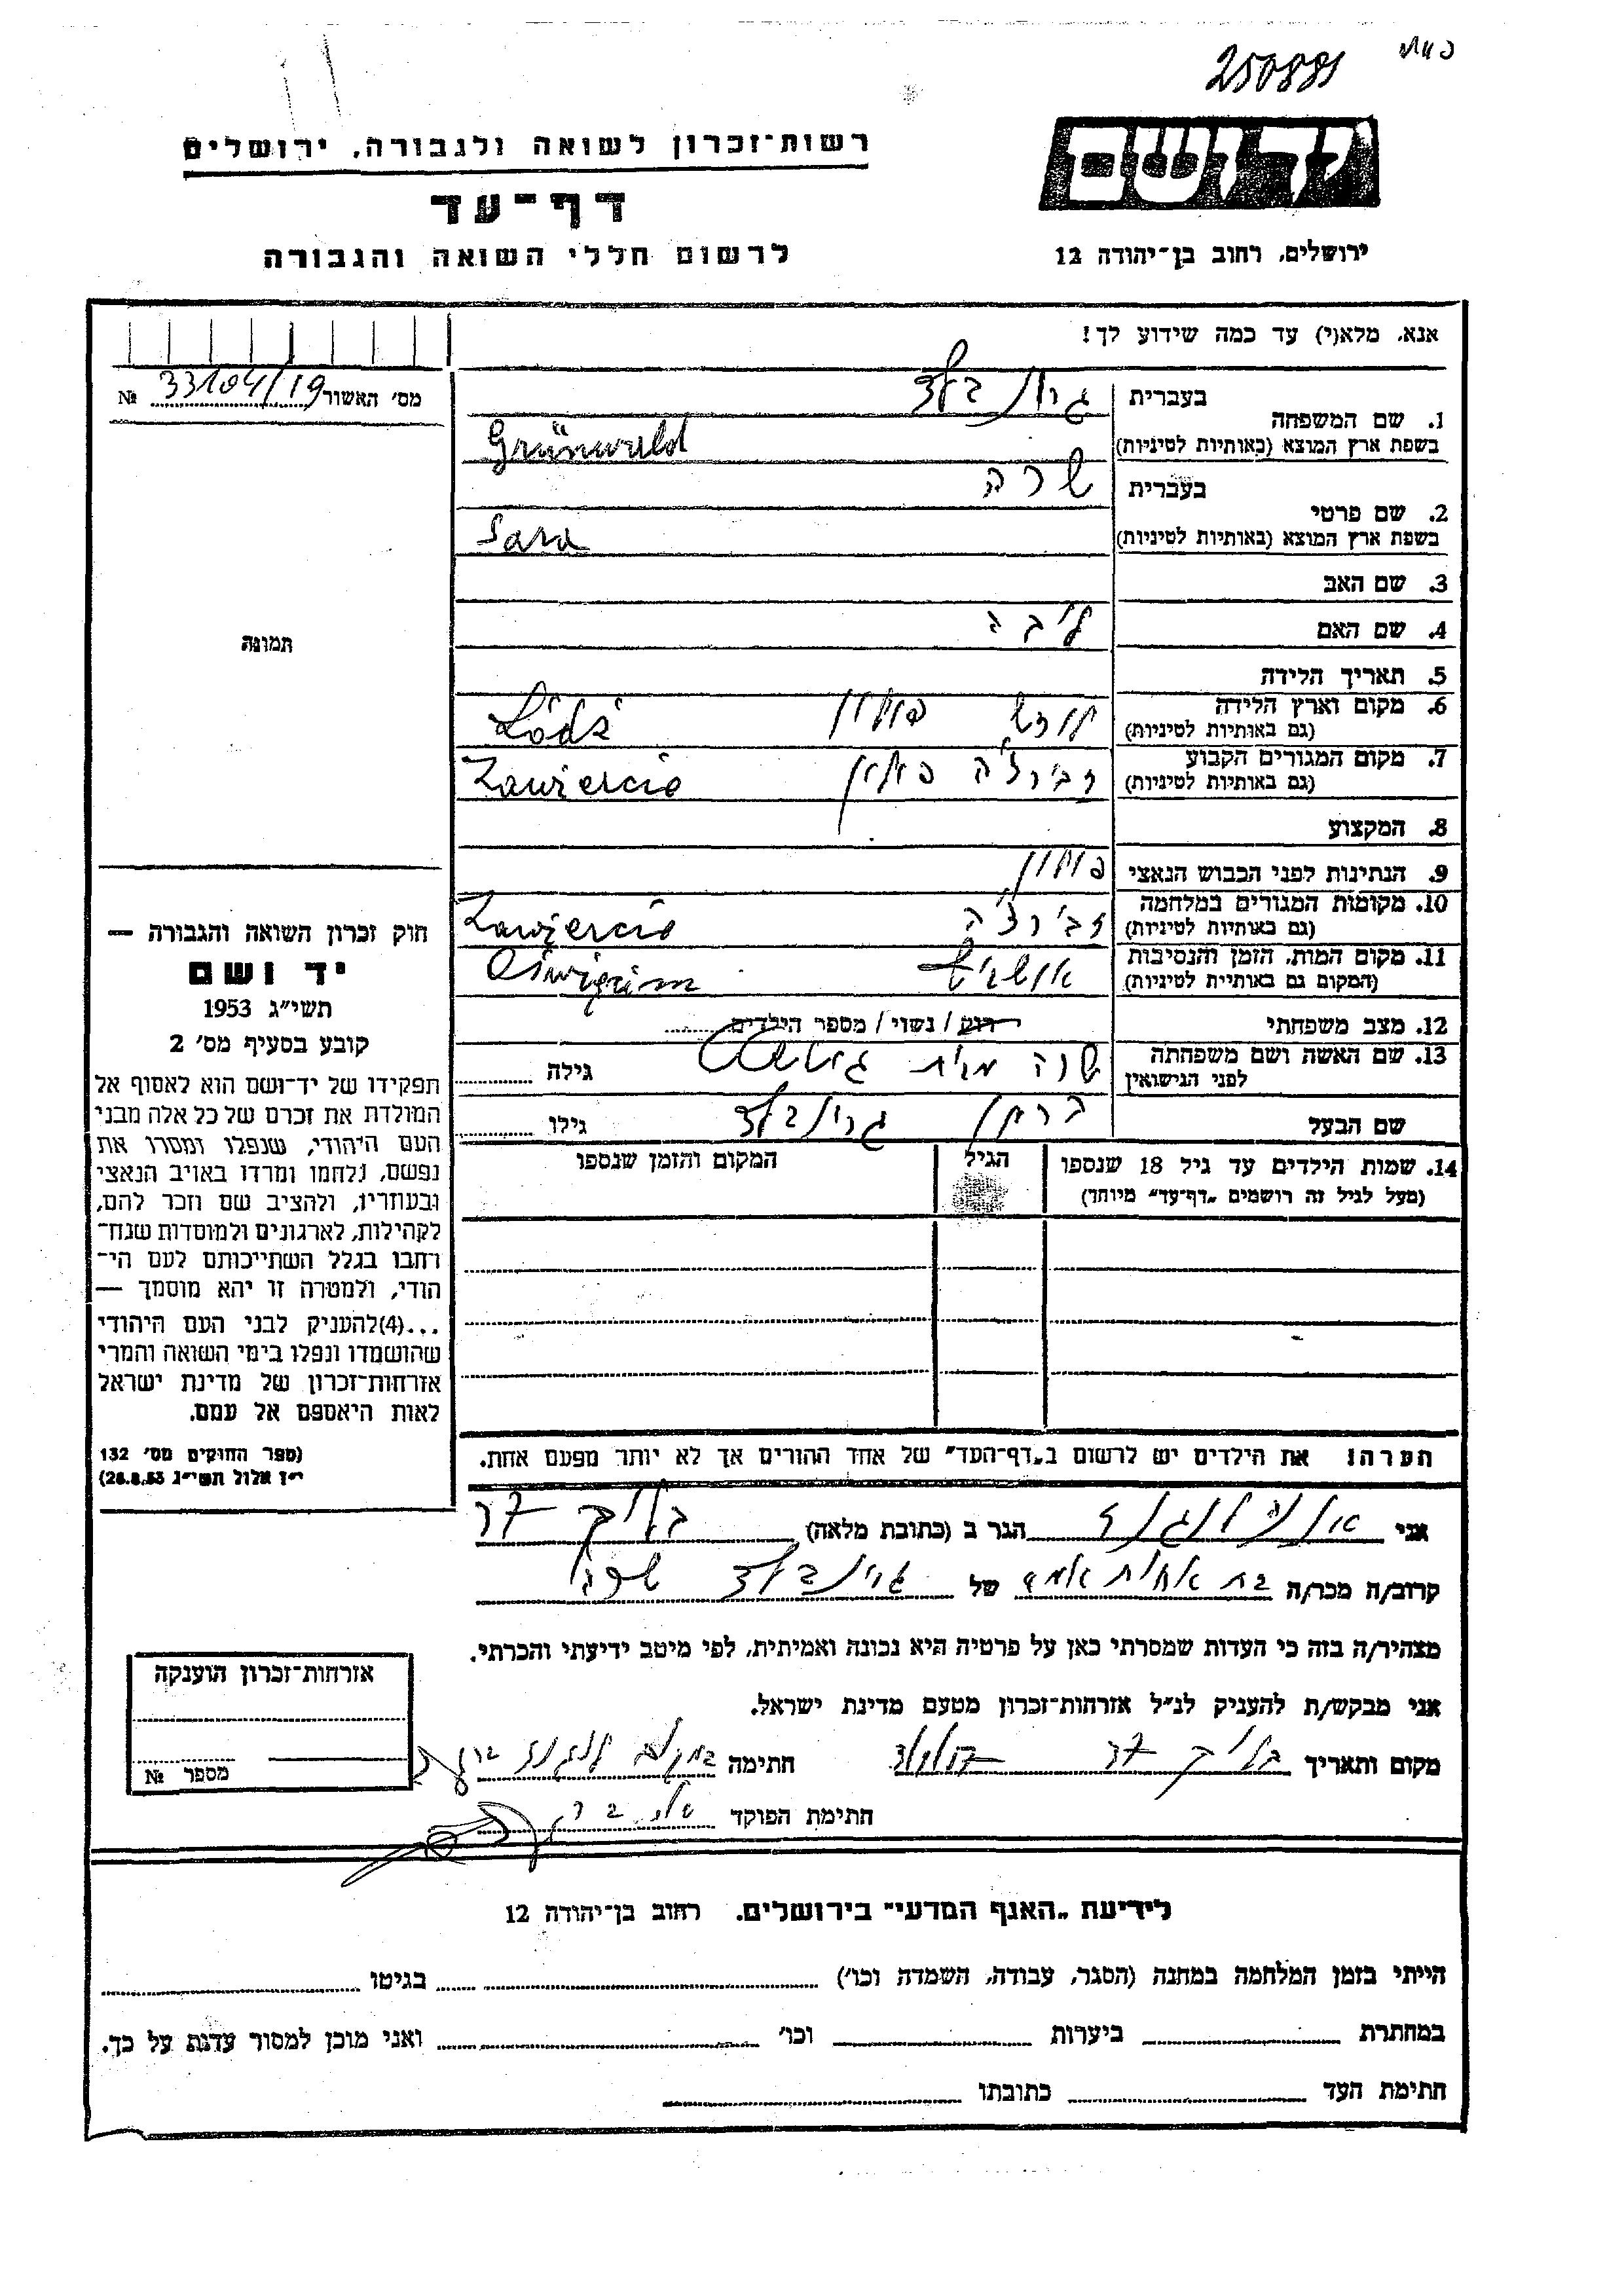 250881
רשות־זכרון לשואה ולגבורה, ירושלים
יד ושם
דף־עד
לרשום חללי השואה והגבורה
ירושלים, רחוב בן־יהודה 12
אנא, מלא(י) עד כמה שידוע לך!
מס' האשור 33104/19 №
1. שם המשפחה
בעברית גרינבלד
בשפת ארץ המוצא (באותיות לטיניות) Grünwald
2. שם פרטי
בעברית שרה
בשפת ארץ המוצא (באותיות לטיניות) Sara
3. שם האב
4. שם האם ליבה
תמונה
5. תאריך הלידה
6. מקום וארץ הלידה לודז' פולין Łódź
(גם באותיות לטיניות)
7. מקום המגורים הקבוע זבירצ'ה פולין Zawiercie
(גם באותיות לטיניות)
8. המקצוע
9. הנתינות לפני הכבוש הנאצי פולין
10. מקומות המגורים במלחמה זבירצ'ה Zawiercie
(גם באותיות לטיניות)
11. מקום המות, הזמן והנסיבות אושביץ
(המקום גם באותיית לטיניות)
12. מצב משפחתי רווק / נשוי / מספר הילדים
13. שם האשה ושם משפחתה שרה מבית גילה
לפני הנישואין
שם הבעל גרינבלד גילו
14. שמות הילדים עד גיל 18 שנספו הגיל המקום והזמן שנספו
(מעל לגיל זה רושמים „דף־עד" מיוחד)
חוק זכרון השואה והגבורה —
יד ושם
תשי"ג 1953
קובע בסעיף מס' 2
תפקידו של יד־ושם הוא לאסוף אל
המולדת את זכרם של כל אלה מבני
העם היהודי, שנפלו ומסרו את
נפשם, נלחמו ומרדו באויב הנאצי
ובעוזריו, ולהציב שם וזכר להם,
לקהילות, לארגונים ולמוסדות שנח־
רבו בגלל השתייכותם לעם הי־
הודי, ולמטרה זו יהא מוסמך —
...(4)להעניק לבני העם היהודי
שהושמדו ונפלו בימי השואה והמרי
אזרחות־זכרון של מדינת ישראל
לאות היאספם אל עמם.
(ספר החוקים מס' 132
י"ז אלול תשי"ג 28.8.53)
הערה! את הילדים יש לרשום ב„דף־העד" של אחד ההורים אך לא יותר מפעם אחת.
אני הגר ב (כתובת מלאה)
קרוב/ה מכר/ה בת אחות אמה של גרינבלד שרה
מצהיר/ה בזה כי העדות שמסרתי כאן על פרטיה היא נכונה ואמיתית, לפי מיטב ידיעתי והכרתי.
אני מבקש/ת להעניק לנ"ל אזרחות־זכרון מטעם מדינת ישראל.
מקום ותאריך חתימה
חתימת הפוקד
אזרחות־זכרון הוענקה
מספר №
לידיעת „האגף המדעי" בירושלים. רחוב בן־יהודה 12
הייתי בזמן המלחמה במחנה (הסגר, עבודה, השמדה וכו') בגיטו
במחתרת ביערות וכו' ואני מוכן למסור עדות על כך.
חתימת העד כתובתו